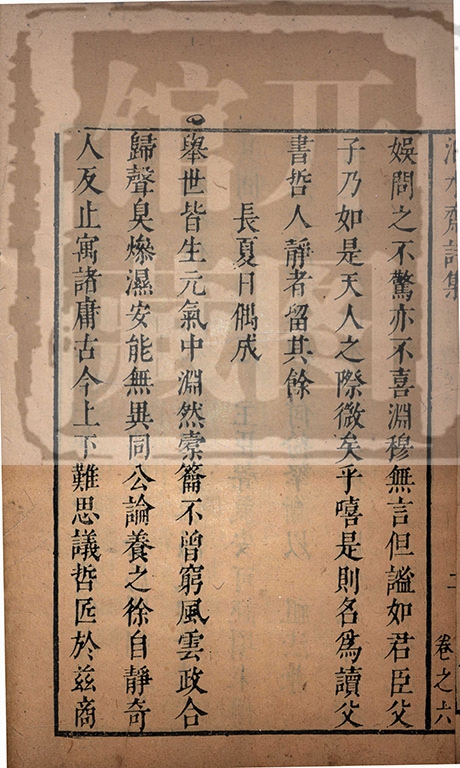 泊水齋詩集
二
卷之六
娛問之不驚亦不喜淵穆無言但謐如君臣父
子乃如是天人之際微矣乎嘻是則名爲讀父
書哲人靜者留其餘
長夏日偶成
舉世皆生元氣中淵然橐籥不曾窮風雲政合
歸聲臭燥濕安能無異同公論養之徐自靜奇
人反止寓諸庸古今上下難思議哲匠於茲商